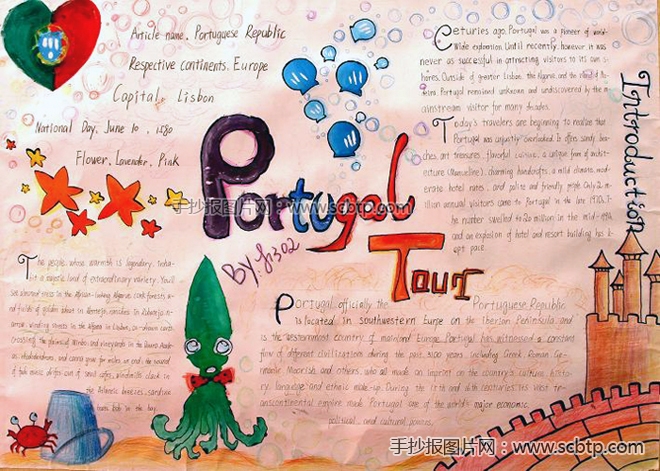 Article name. Portuguese Republic
Respective continents. Europe
Capital. Lisbon
National Day. June 10, 1580
Flower. Lavender, Pink
Portugal
Tour
By: J1302
Introduction
Ceturies ago, Portugal was a pioneer of world-
Wide exploration. Until recently, however it was
never as successful in attracting visitors to its own s-
hores. Outside of greater Lisbon, the Algarve, and the island of
Portugal remained unknown and undiscovered by the m
ainstream visitor for many decades.
Today's travelers are beginning to realize that
Portugal was unjustly overlooked. It offers sandy bea-
ches, art treasures, flavorful cuisine, a unique form of archit-
ecture (Manueline), charming handcrafts, a mild climate, mod-
erate hotel rates, and polite and friendly people. Only 2
million annual visitors came to Portugal in the late 1970s. T
he number swelled to 20 million in the mid-
and an explosion of hotel and resort building has k-
ept pace.
The people, whose warmth is legendary,
in a scenic land of extraordinary variety. You'll
see almond trees in the African-looking Algarve, cork forests a
nd fields of golden wheat in Alentejo, ranches in Ribatejo,
narrow, winding streets in the Alfama in Lisbon, ox-drawn carts
crossing the plains of Minho and vineyards in the Douro
rhododendrons, and canna grow for miles on end; the sound
of fado music drifts out of small cafes; windmills clack in
the Atlantic breezes; sardine
boats bob in the bay
Portugal, officially the Portuguese Republic
is located in southwestern Europe on the Iberian Peninsula and
is the westernmost country of mainland Europe. Portugal has witnessed a constant
flow of different civilizations during the past 3100 years, including Greek, Roman, Ge-
rmanic, Moorish and others, who all made an imprint on the country's culture, his-
tory, language and ethnic make-up. During the 15th and 16th centuries, its vast tr-
anscontinental empire made Portugal one of the world's major economic,
political, and cultural powers.
手抄报图片网:www.scbtp.com
手抄报图片网:www.scbtp.com